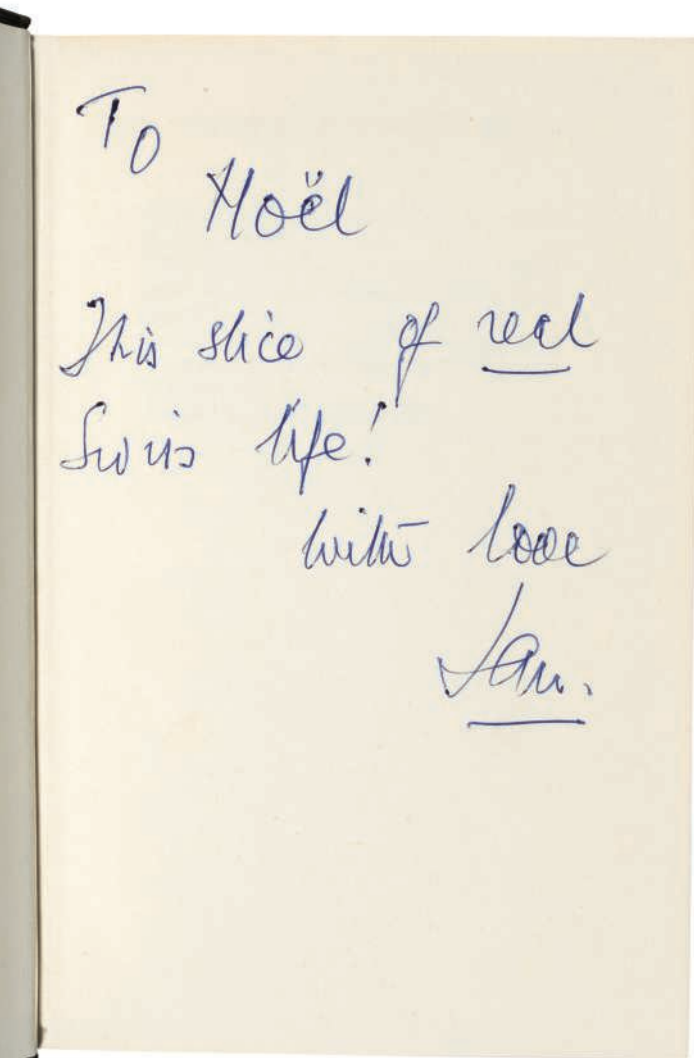 To
Noël
This slice of real
Swiss life!
with love
Ian.